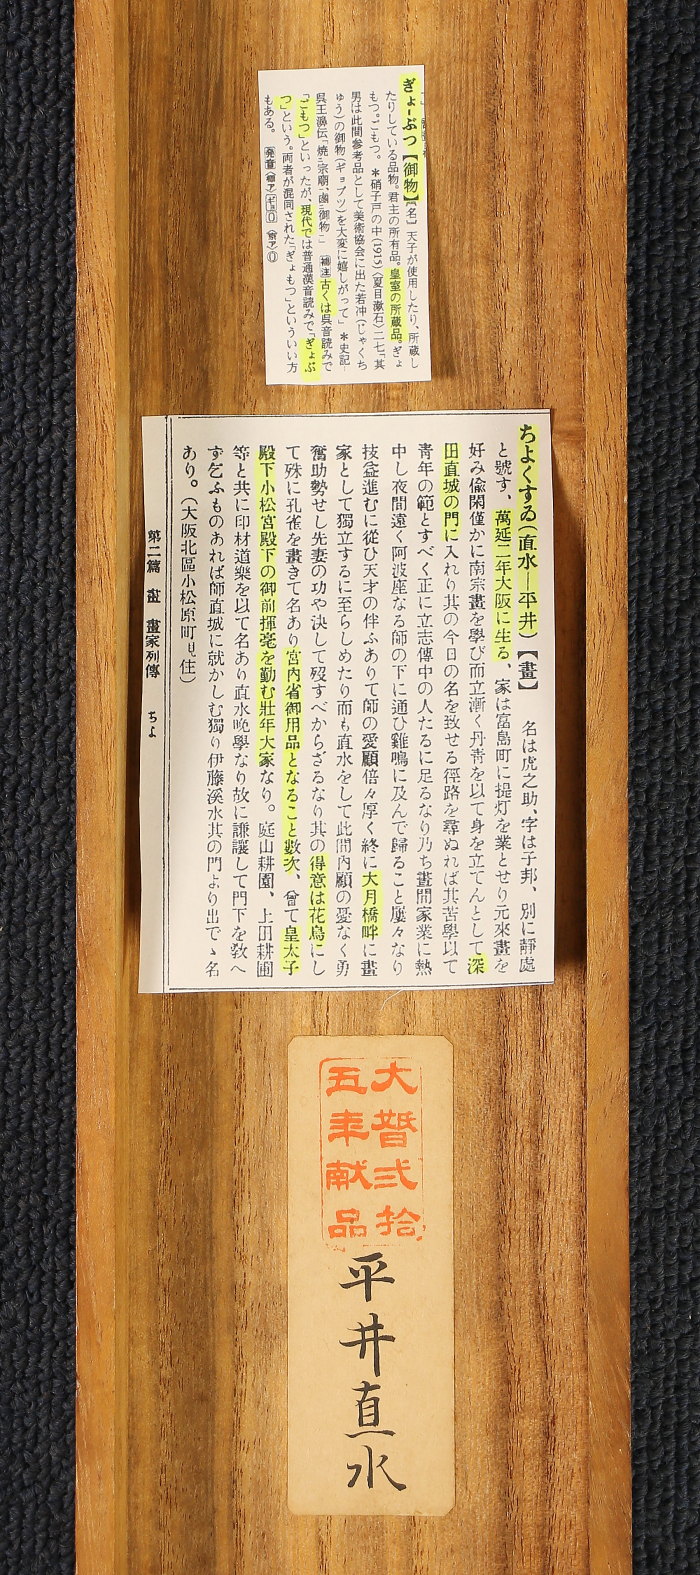 ぎょ‐ぶつ【御物】〖名〗天子が使用したり、所蔵し
たりしている品物。君主の所有品。皇室の所蔵品。ぎょ
もつ。ごもつ。＊硝子戸の中(1915)〈夏目漱石〉二七「其
男は此間参考品として美術協会に出た若冲(じゃくち
ゅう)の御物(ギョブツ)を大変に嬉しがって」＊史記-
呉王濞伝「焼宗廟、鹵御物」 補注 古くは呉音読みで
「ごもつ」といったが、現代では普通漢音読みで「ぎょぶ
つ」という。両者が混同された「ぎょもつ」といういい方
もある。 発音
ちよくすゐ(直水—平井)【畫】 名は虎之助、字は子邦、別に靜處
と號す、萬延二年大阪に生る、家は富島町に提灯を業とせり元來畫を
好み偸閑僅かに南宗畫を學び而立漸く丹靑を以て身を立てんとして深
田直城の門に入れり其の今日の名を致せる徑路を尋ぬれば其苦學以て
靑年の範とすべく正に立志傳中の人たるに足るなり乃ち晝間家業に熱
中し夜間遠く阿波座なる師の下に通ひ雞鳴に及んで歸ること屢々なり
技益進むに從ひ天才の伴ふありて師の愛顧倍々厚く終に大月橋畔に畫
家として獨立するに至らしめたり而も直水をして此間内顧の憂なく勇
奮助勢せし先妻の功や決して歿すべからざるなり其の得意は花鳥にし
て殊に孔雀を畫きて名あり宮内省御用品となること數次、曾て皇太子
殿下小松宮殿下の御前揮毫を勤む壯年大家なり。庭山耕園、上田耕圃
等と共に印材道樂を以て名あり直水晩學なり故に謙讓して門下を敎へ
ず乞ふものあれば師直城に就かしむ獨り伊藤溪水其の門より出でゝ名
あり。(大阪北區小松原町ʜ住)
第二篇 畫 畫家列傳 ちよ
大婚弐拾
五年献品
平井直水